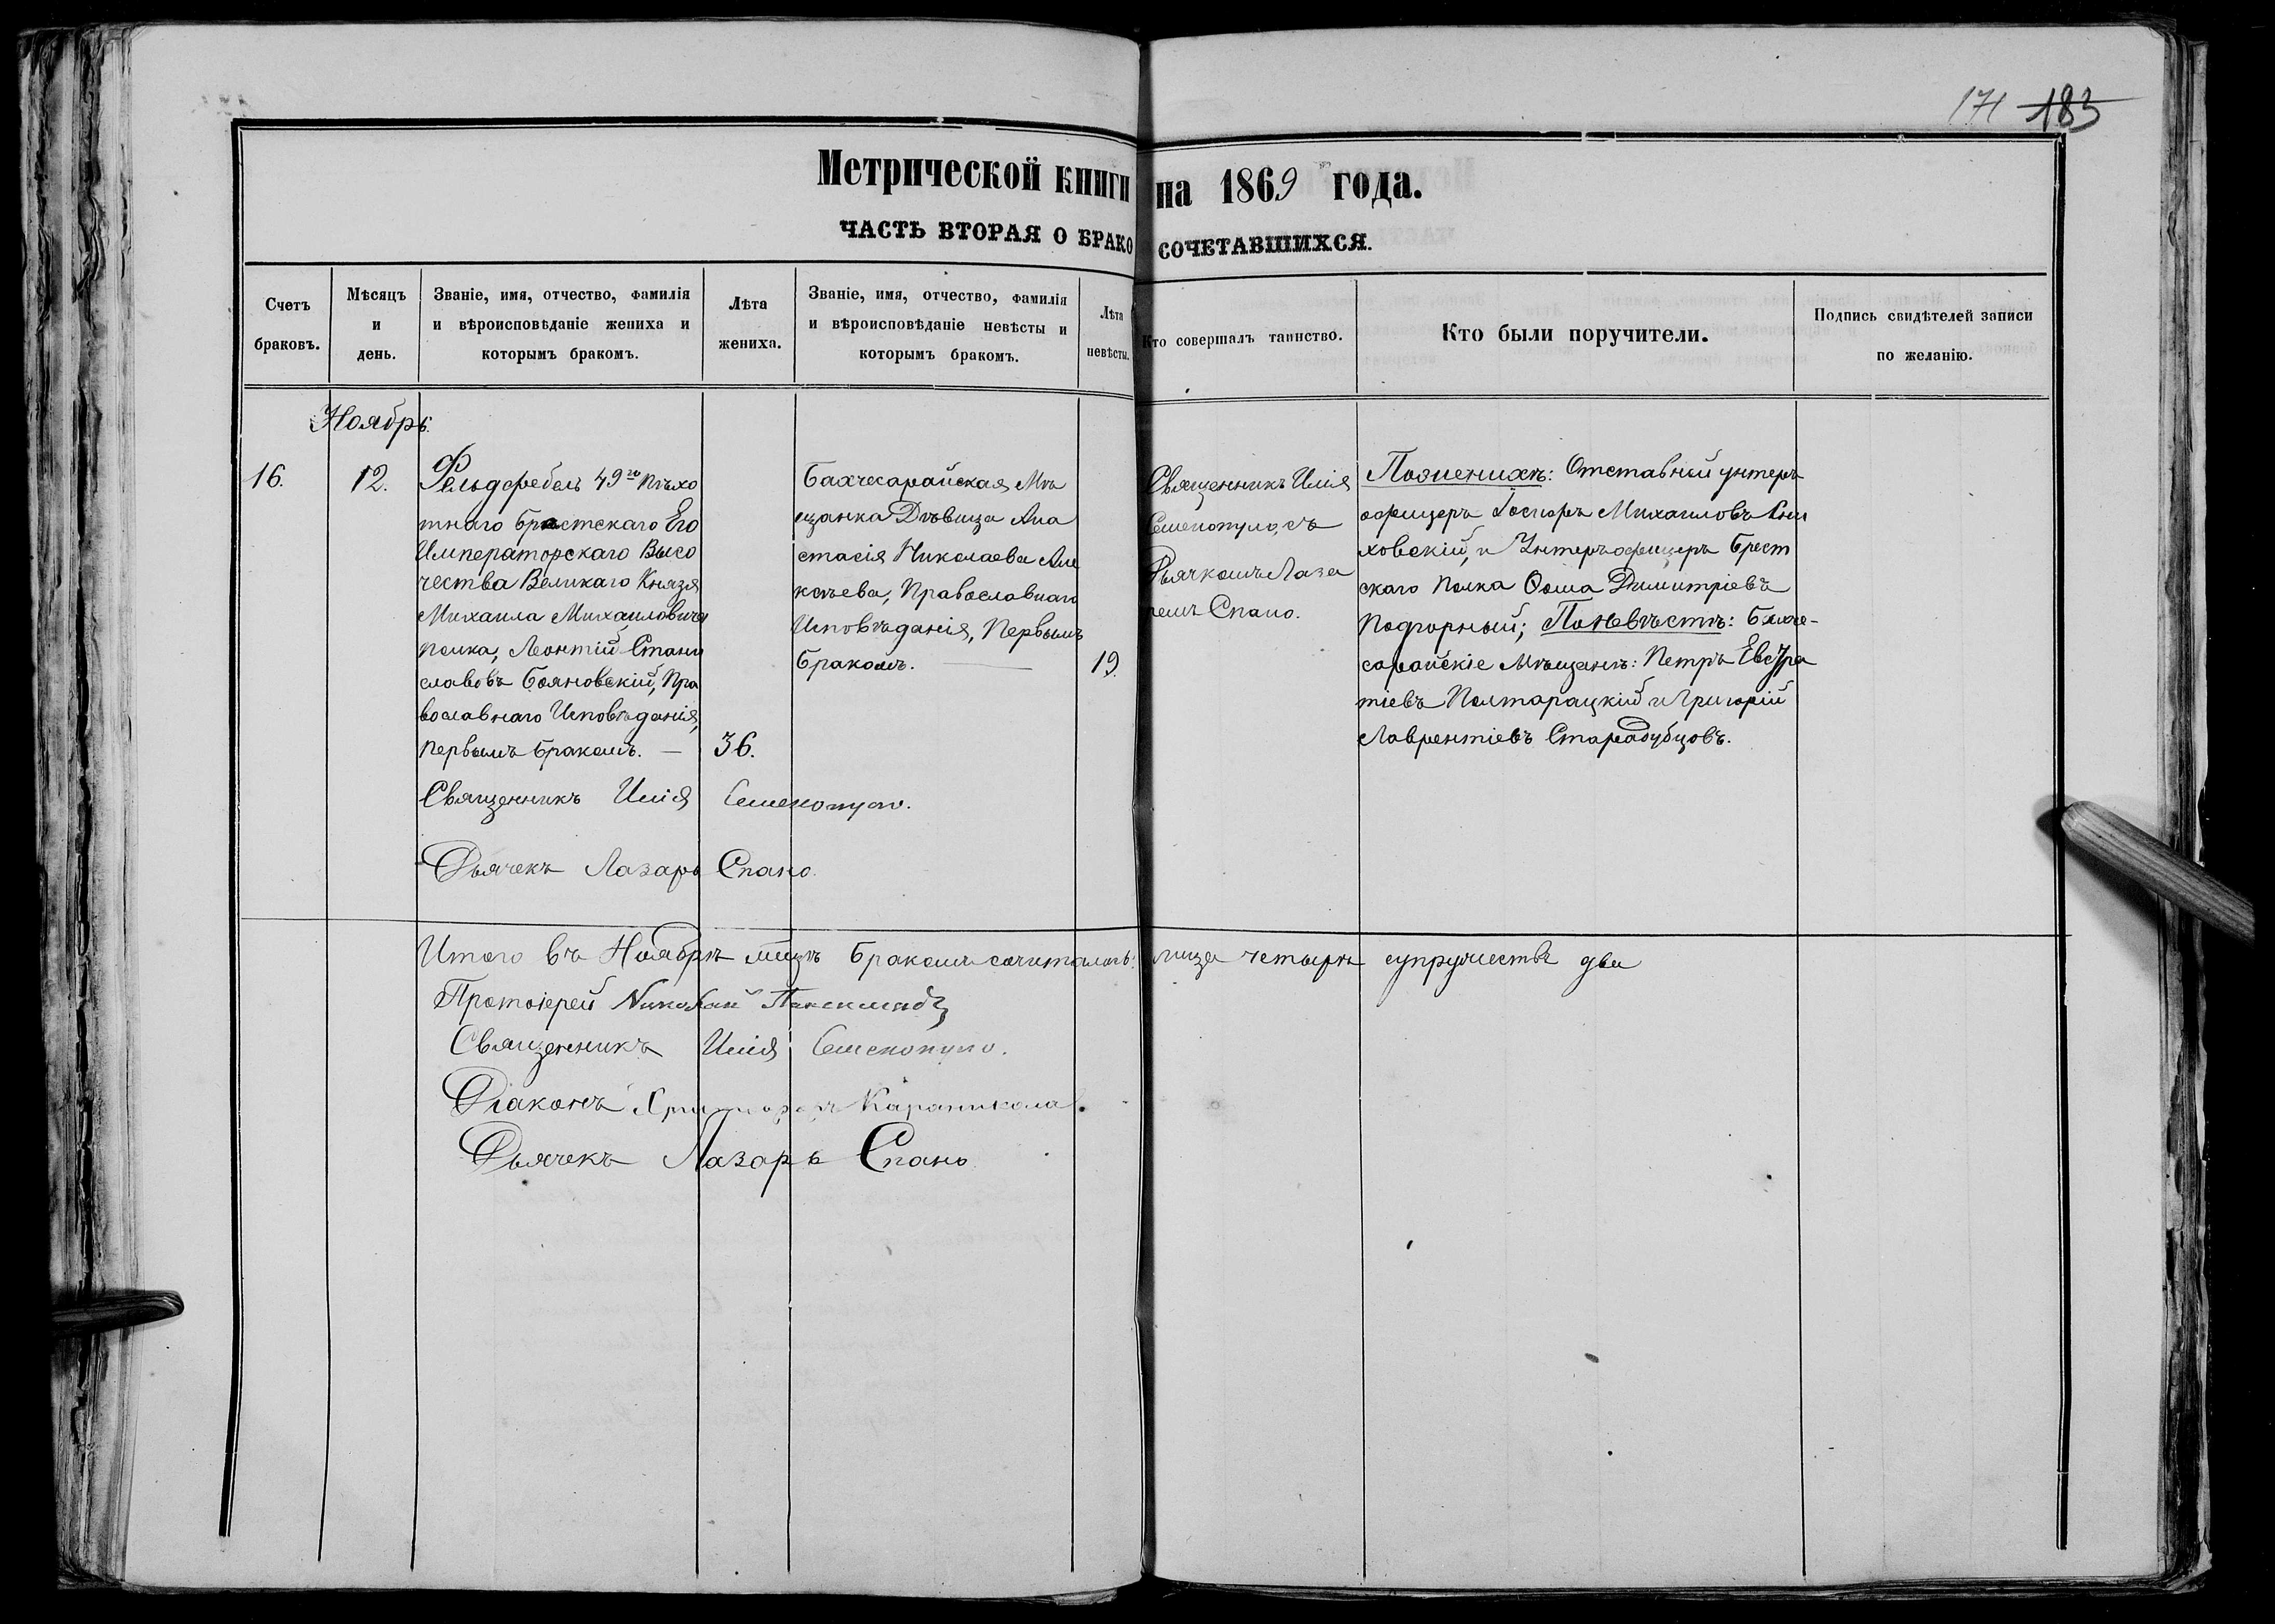 171 183
Метрической книги на 1869 года.
ЧАСТЬ ВТОРАЯ О БРАКОСОЧЕТАВШИХСЯ.
Счетъ браковъ.
Мѣсяцъ и день.
Званіе, имя, отчество, фамилія
и вѣроисповѣданіе жениха и
которымъ бракомъ.
Лѣта жениха.
Званіе, имя, отчество, фамилія
и вѣроисповѣданіе невѣсты и
которымъ бракомъ.
Лѣта невѣсты.
Кто совершалъ таинство.
Кто были поручители.
Подпись свидѣтелей записи
по желанію.
Ноябрь.
16.
12.
Фельдфебель 49го Пѣхо
тнаго Брестскаго Его
Императорскаго Высо
чества Великаго Князя
Михаила Михаиловича
полка, Леонтій Стани
славовъ Бояновскій, Пра
вославнаго Исповѣданія,
первымъ бракомъ. —
36.
Бахчесарайская Мѣ
щанка Дѣвица Ана
стасія Николаева Але
ксѣева, Православнаго
Исповѣданія, Первымъ
бракомъ. —
19.
Священникъ Илія
Семенопуло, съ
Дьячкомъ Лаза
ремъ Спано.
По женихѣ: Отставной унтеръ
офицеръ Іосифъ Михаиловъ
ховскій, и Унтеръ офицеръ Брест
скаго полка Ѳома Димитріевъ
Подгорный; По невѣстѣ: Бахче-
сарайскіе Мѣщане: Петръ Евстра
тіевъ Полтарацкій и Григорій
Лаврентіевъ Старадубцовъ.
Священникъ Илія Семенопуло.
Дьячекъ Лазарь Спано.
Итого въ Ноябрѣ мцѣ бракомъ сочиталось: лица четыре супружества два
Протоіерей Николай
Священникъ Илія Семенопуло.
Діаконъ Христофоръ Караникола.
Дьячекъ Лазарь Спано